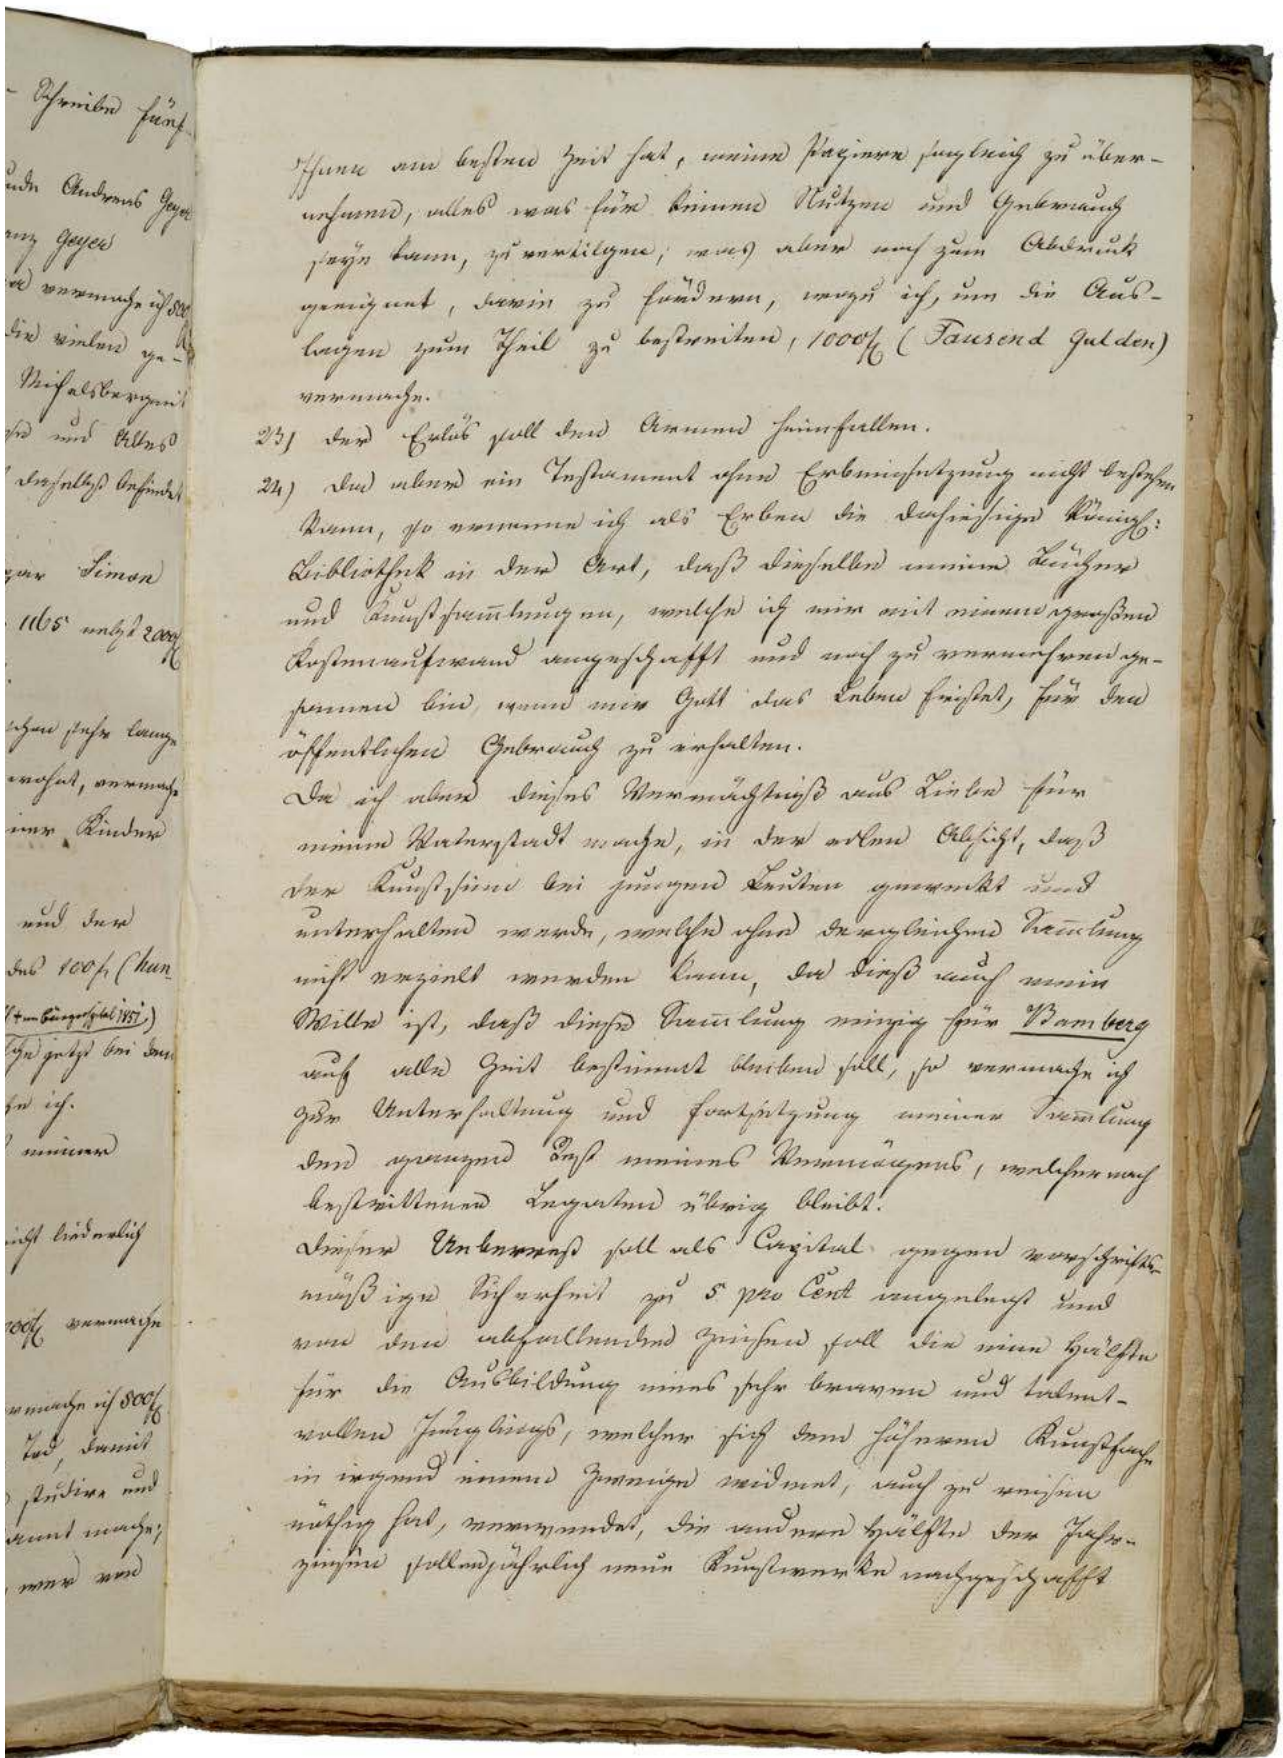 – Schreiber fünf-
Andreas Geyer
Geyer
vermache ich 500
die vielen ge-
Michelsberg mit
und Altes
daselbst befindet
Simon
1165 nebst 2000 fl
sehr lange
wohnt, vermache
Kinder
und der
des 100 fl (hun
bürgerspital 1851.)
jetzt bei dem
ich.
meiner
nicht liederlich
vermache
vermache ich 500 fl
Tod, damit
studire und
mache;
wer von
Ihnen am besten Zeit hat, meine Papiere sogleich zu über-
nehmen, alles was für keinen Nutzen und Gebrauch
seyn kann, zu vertilgen; was aber noch zum Abdruck
geeignet, darin zu fördern, wozu ich, um die Aus-
lagen zum Theil zu bestreiten, 1000 fl (Tausend Gulden)
vermache.
23) der Erlös soll den Armen heimfallen.
24) Da aber ein Testament ohne Erbeinsetzung nicht bestehen
kann, so ernenne ich als Erben die dahiesige Königl:
Bibliothek in der Art, daß dieselbe meine Bücher
und Kunstsam̅lungen, welche ich mir mit einem großen
Kostenaufwand angeschafft und noch zu vermehren ge-
sonnen bin, wenn mir Gott das Leben fristet, für den
öffentlichen Gebrauch zu erhalten.
Da ich aber dieses Vermächtniß aus Liebe für
meine Vaterstadt mache, in der edlen Absicht, daß
der Kunstsinn bei jungen Leuten geweckt und
unterhalten werde, welche ohne dergleichen Sam̅lung
nicht erzielt werden kann, da dieß auch mein
Wille ist, daß diese Sam̅lung einzig für Bamberg
auf alle Zeit bestimmt bleiben soll, so vermache ich
zur Unterhaltung und Fortsetzung meiner Sam̅lung
den ganzen Rest meines Vermögens, welcher nach
bestrittenen Legaten übrig bleibt.
Dieser Ueberrest soll als Capital gegen vorschrifts-
mäßige Sicherheit zu 5 pro Cent angelegt und
von den abfallenden Zinsen soll die eine Hälfte
für die Ausbildung eines sehr braven und talent-
vollen Jünglings, welcher sich dem höheren Kunstfache
in irgend einem Zweige widmet, auch zu reisen
nöthig hat, verwendet, die andere Hälfte der Jahr-
zinsen sollen jährlich neue Kunstwerke nachgeschafft